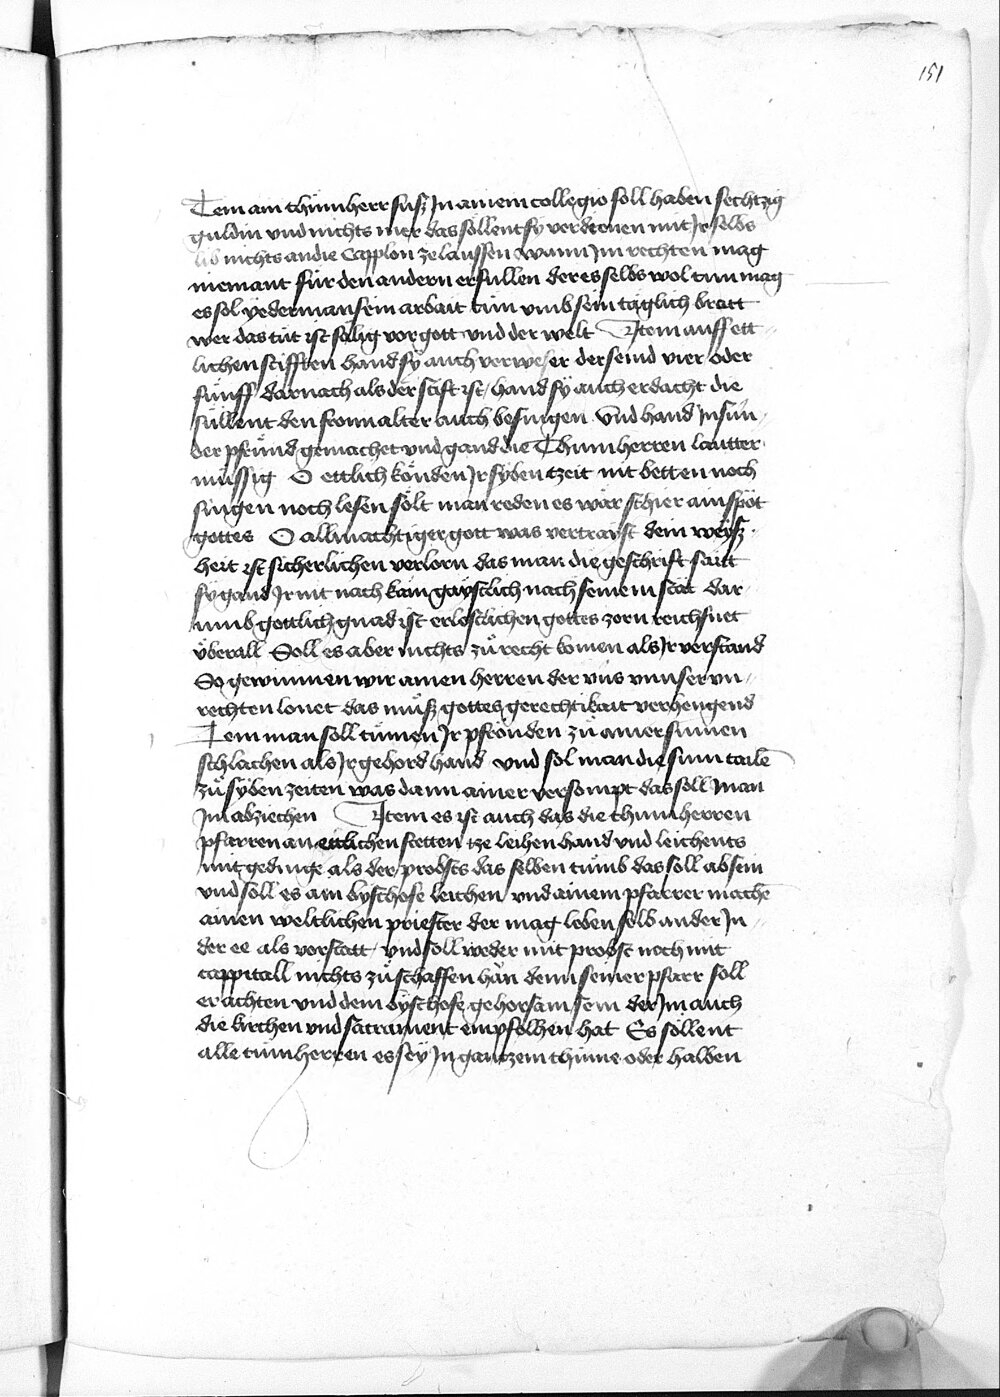 151
Item ain thuͦmherr suß Jn ainem collegio soll haben sechtzig
guldin vnd nichts mer das söllent sy verdienen mit Jr selbs
lib nichts an die Capplon zelaussen wann Jm rechten mag
niemant für den andern erfullen der es selbs wol tun mag
es sol yederman sein arbait tün vmb sein täglich brott
wer das tüt ist sälig vor gott vnd der welt Item auff ett
lichen stifften hand sÿ auch verweser der seind vier oder
fünff darnach als der stift ist / hand sÿ auch erdacht die
süllent den fronn alter auch besingen Vnd hand Jn sun
der pfründ gemachet vnd gand die Thumherren lautter
müssig O ettlich könden Jr syben tzeit nit betten noch
singen noch lesen sölt man reden es wär schier ain spöt
gottes O allmächtiger gott was vertraist dein weyß
heit ist sicherlichen verlorn das man die geschrift sait
sy gand Jr nit nach kain gaystlich nach seinem stat dar
vmb gottlich gnad ist erloschlichen gottes zorn reichsnet
überall Soll es aber nichts zuͦ recht komen als Jr verstand
So gewinnen wir ainen herren der vns vnnser vn
rechten lonet das muͦß gottes gerechtikait verhengend
Item man soll tuͦmen Jr pfronden zuͦ ainer summen
schlachen als Jr gehord hand vnd sol man die sum taile
zuͦ syben zeiten was dann ainer versompt das soll man
Jm abziechen Item es ist auch das die thumherren
pfarren an ettlichen stetten tze leihen hand vnd leichents
mit gedinge als der probsts das selben tuͦmb das soll absein
vnd soll es ain byschofe leichen vnd ainem pfarrer mache
ainen weltlichen priester der mag leben selb ander Jn
der ee als vorstatt / vnd soll weder mit probst noch mit
cappitall nichts zuͦ schaffen hän denn seiner pfarr soll
er achten vnd dem byschofe gehorsam sein der Jm auch
die kirchen vnd sacrament empfolhen hat Es söllent
alle tuͦmherren es sey Jn gantzem thume oder halben